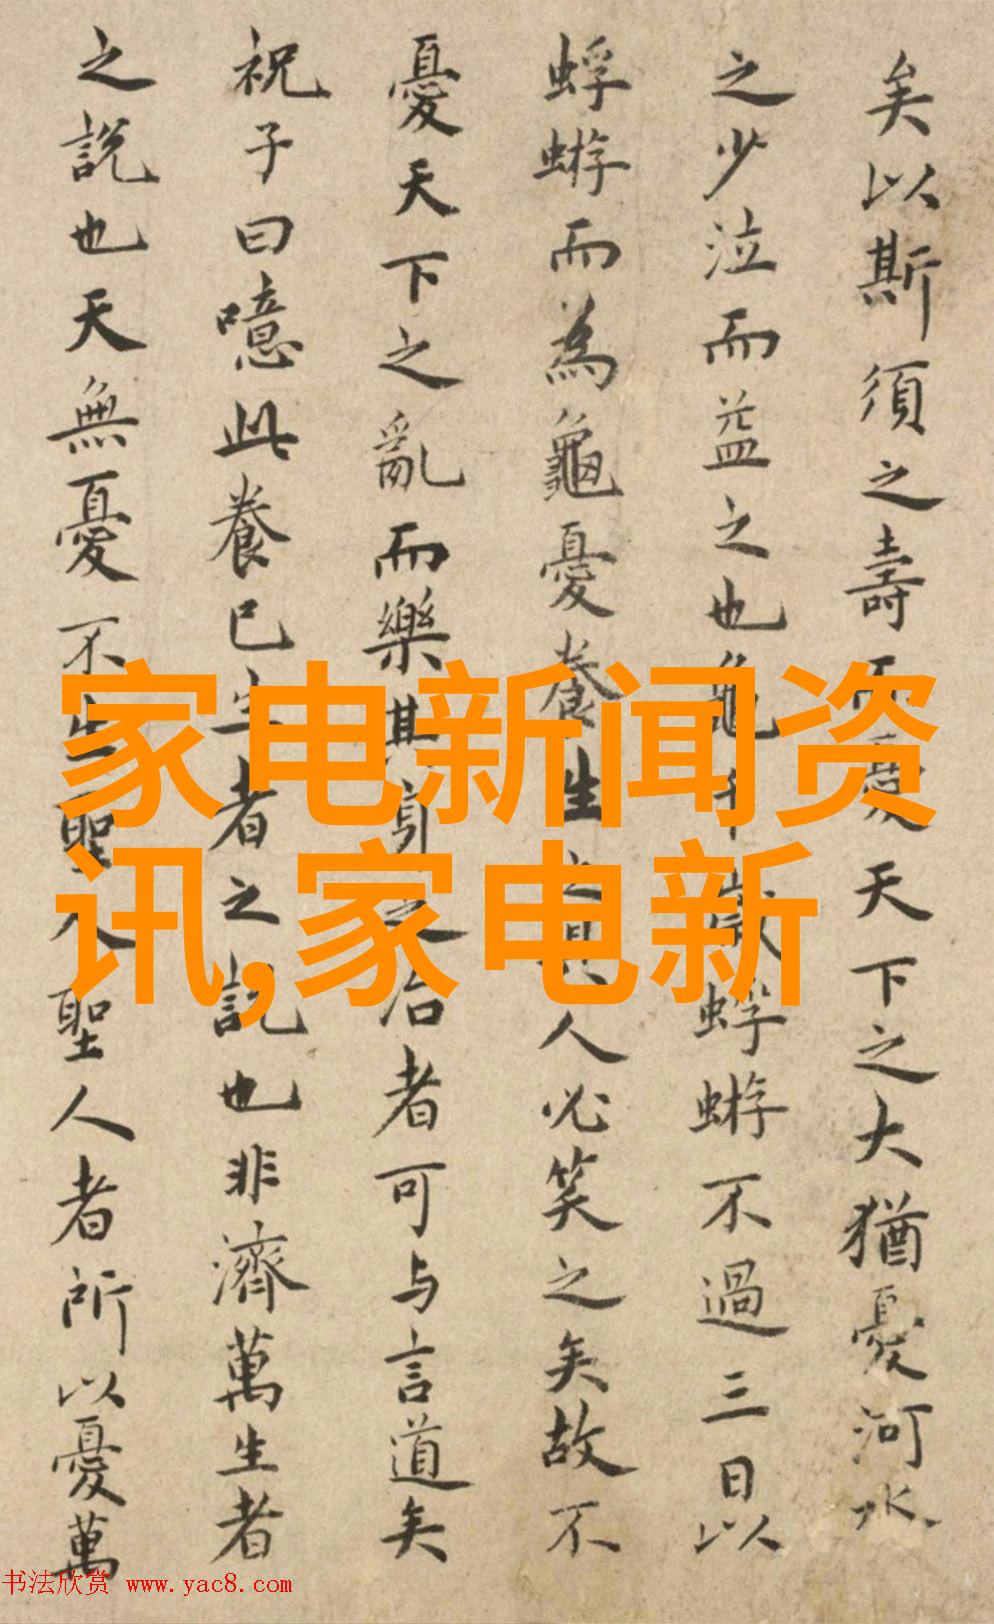 矣以斯須之壽而憂天下之大猶憂河水
之少泣而益之也龜千歲蜉蝣不過三日以
蜉蝣而為龜憂養生之具人必笑之矣故不
憂天下之亂而樂其身之治者可與言道矣
祝子曰噫此養已生者之說也非濟萬生者
之說也天無憂不生聖人聖人者所以憂萬
家电新闻资
讯,家电新
书法欣赏 www.yac8.com